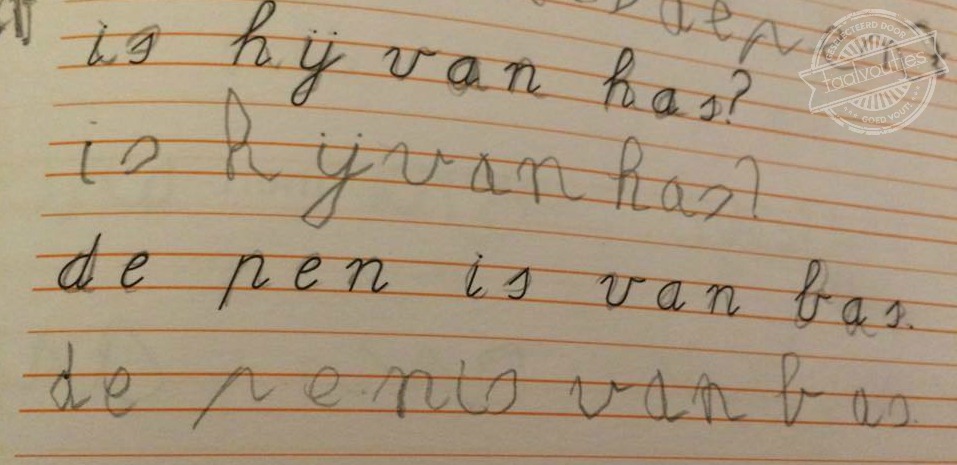 den
is hij van has?
is hij van has?
de pen is van bas.
de penis van bas.
GESELECTEERD DOOR
taalvoutjes
GOED VOUT!